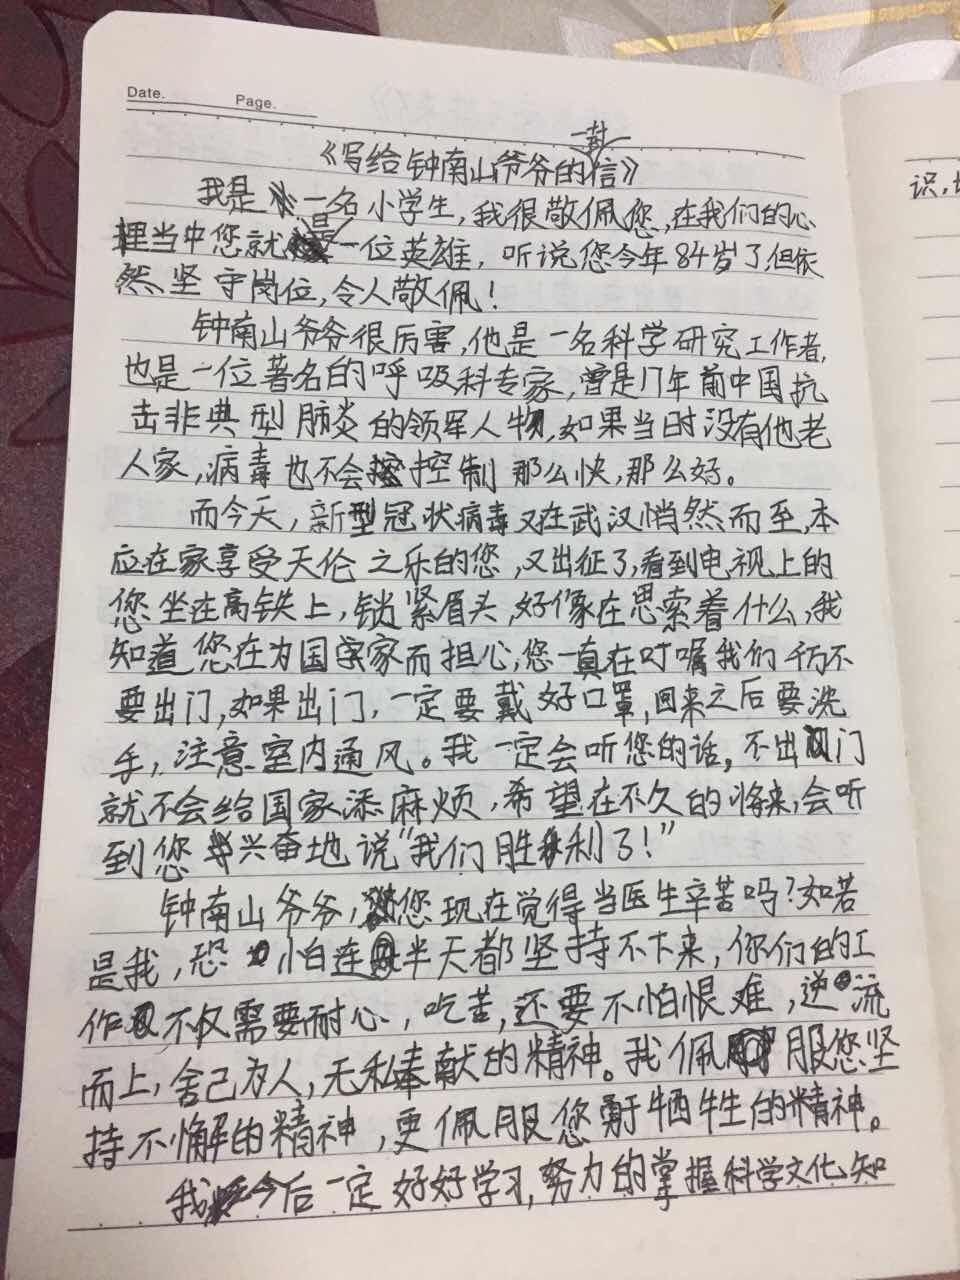 Date.
Page.
《写给钟南山爷爷的一封信》
我是一名小学生,我很敬佩您,在我们的心
里当中您就是一位英雄,听说您今年84岁了,但依
然坚守岗位,令人敬佩!
钟南山爷爷很厉害,他是一名科学研究工作者,
也是一位著名的呼吸科专家,曾是17年前中国抗
击非典型肺炎的领军人物,如果当时没有他老
人家,病毒也不会控制那么快,那么好。
而今天,新型冠状病毒又在武汉悄然而至,本
应在家享受天伦之乐的您,又出征了,看到电视上的
您坐在高铁上,锁紧眉头,好像在思索着什么,我
知道您在为国家而担心,您一直在叮嘱我们千万不
要出门,如果出门,一定要戴好口罩,回来之后要洗
手,注意室内通风。我一定会听您的话,不出门
就不会给国家添麻烦,希望在不久的将来,会听
到您兴奋地说“我们胜利了!”
钟南山爷爷,您现在觉得当医生辛苦吗?如若
是我,恐怕连半天都坚持不下来,你们的工
作不仅需要耐心,吃苦,还要不怕恨难,逆流
而上,舍己为人,无私奉献的精神。我佩服您坚
持不懈的精神,更佩服您勇于牺牲的精神。
我今后一定好好学习,努力的掌握科学文化知
识,